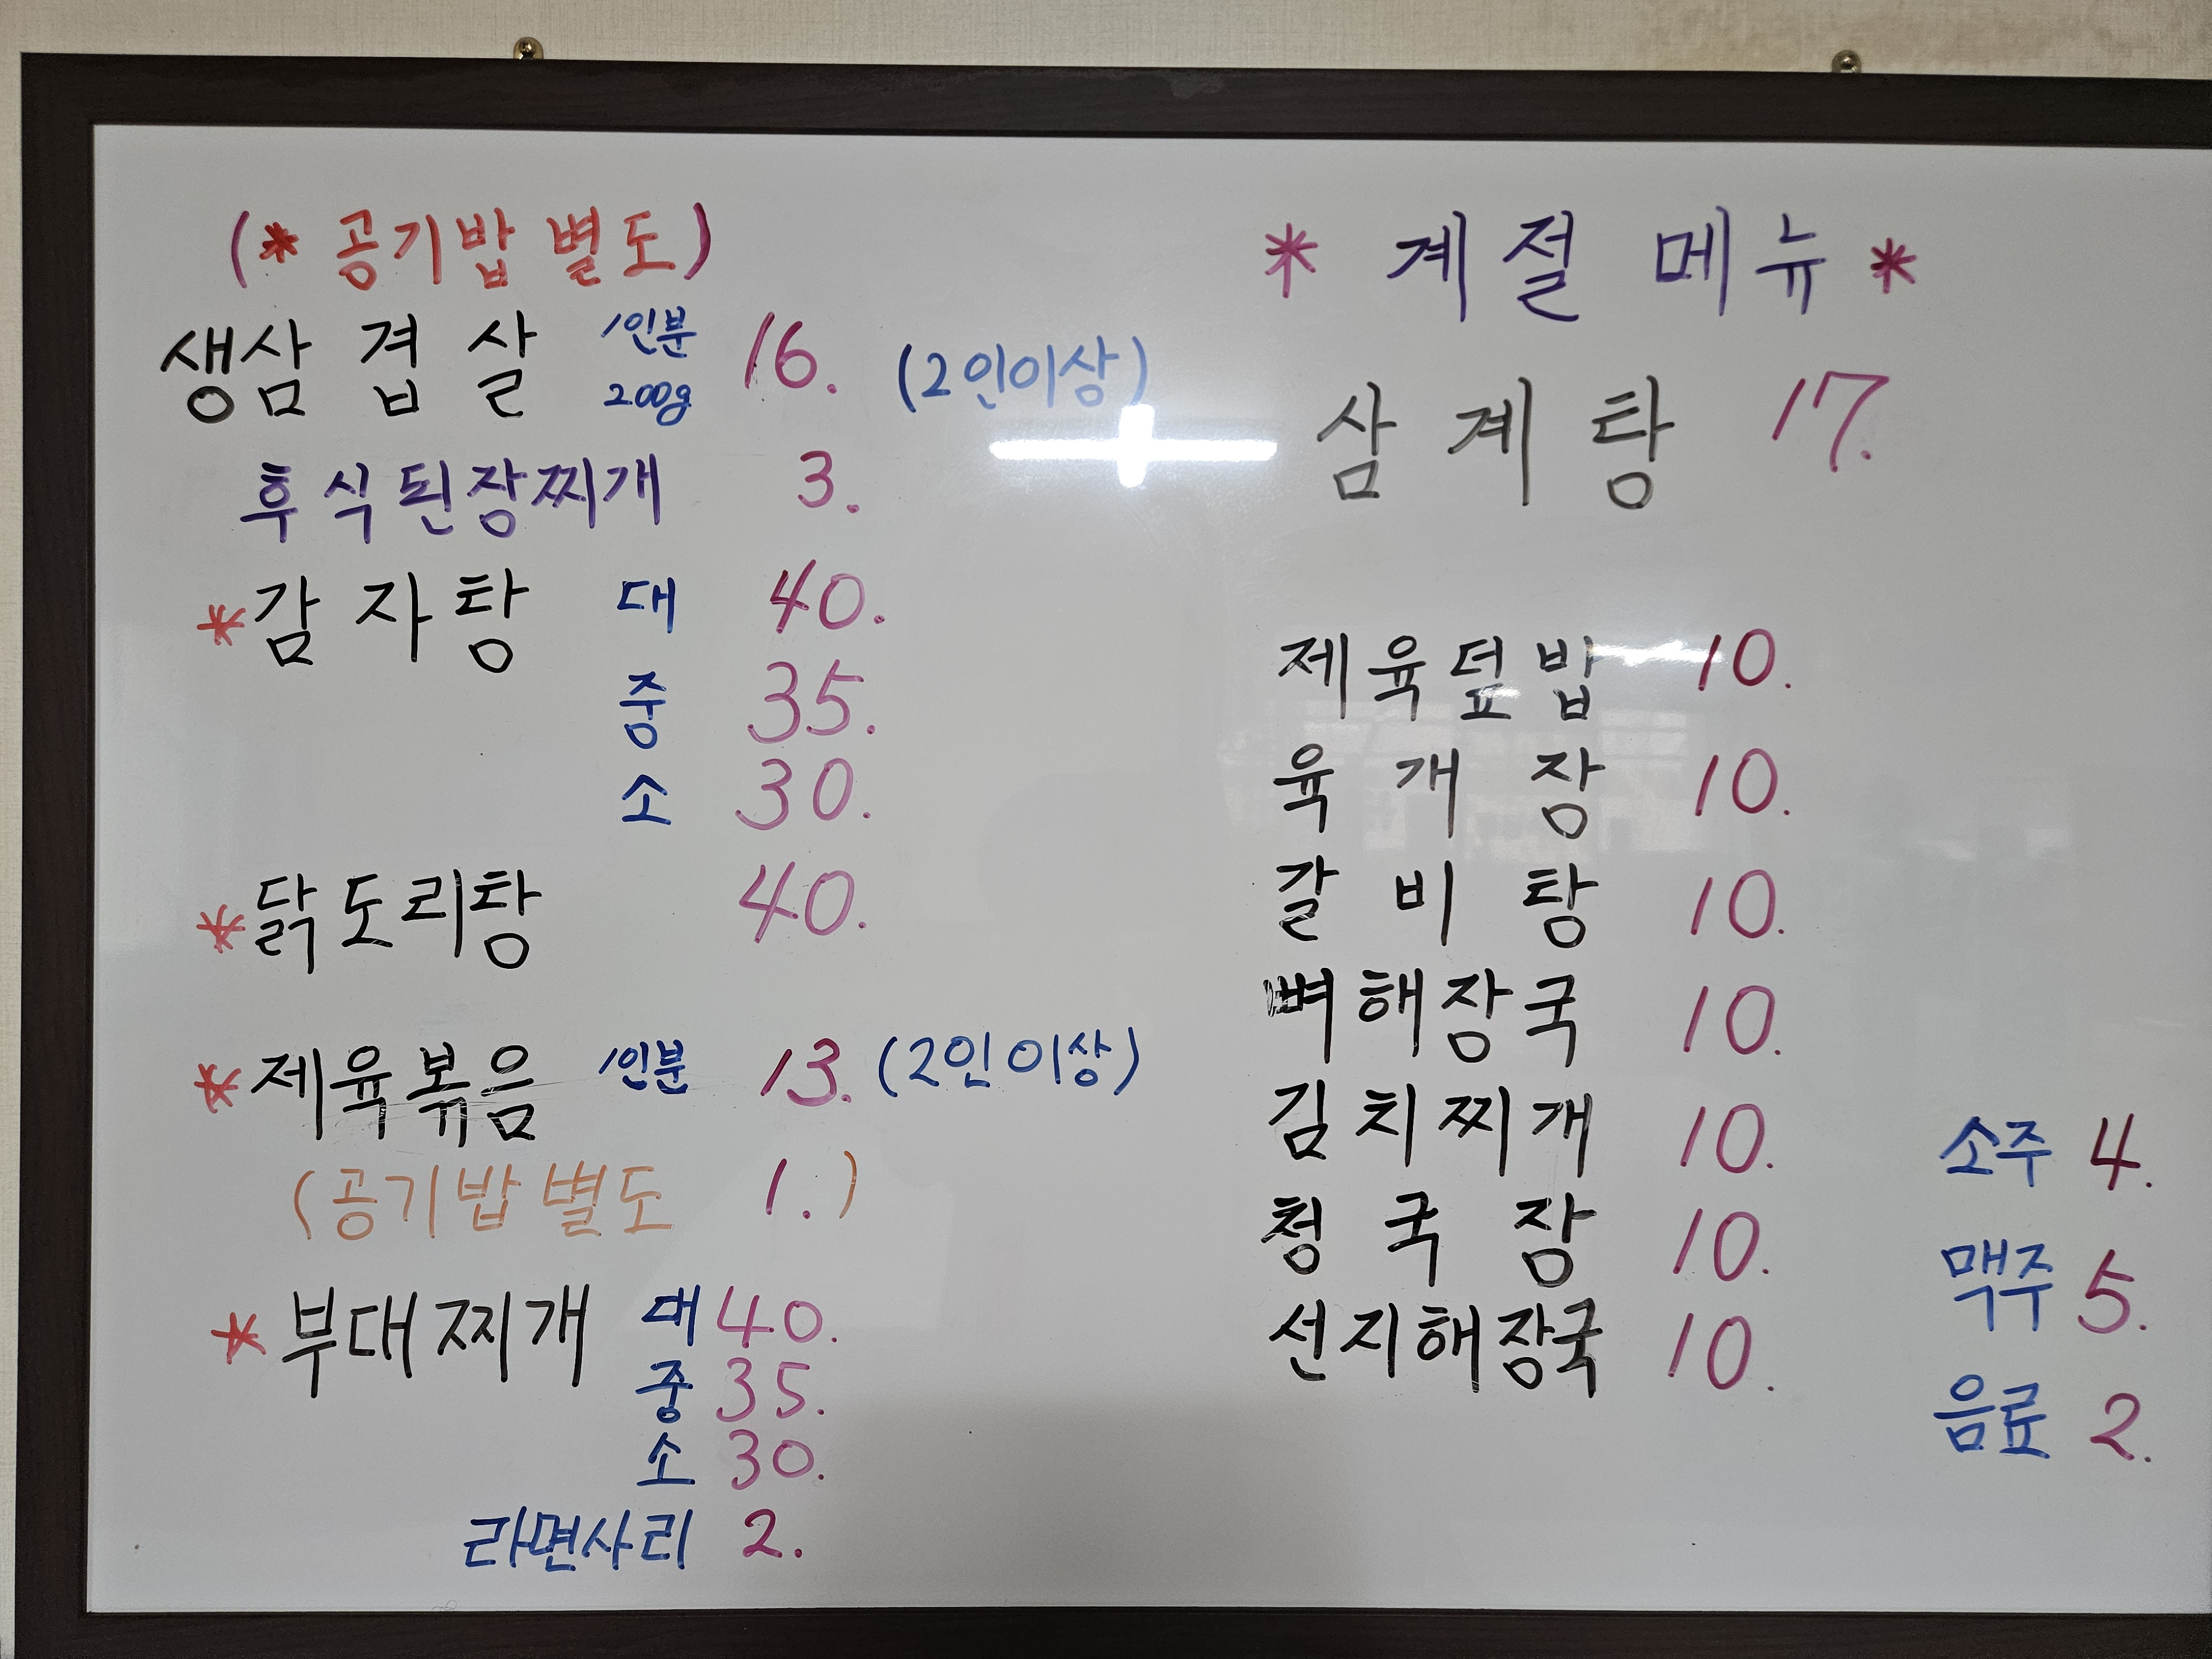 (* 공기밥 별도)
생삼겹살 1인분 200g 16. (2인이상)
후식된장찌개 3.
*감자탕 대 40.
중 35.
소 30.
*닭도리탕 40.
*제육볶음 1인분 13. (2인이상)
(공기밥 별도 1.)
*부대찌개 대 40.
중 35.
소 30.
라면사리 2.
* 계절 메뉴 *
삼계탕 17.
제육덮밥 10.
육개장 10.
갈비탕 10.
뼈해장국 10.
김치찌개 10.
청국장 10.
선지해장국 10.
소주 4.
맥주 5.
음료 2.